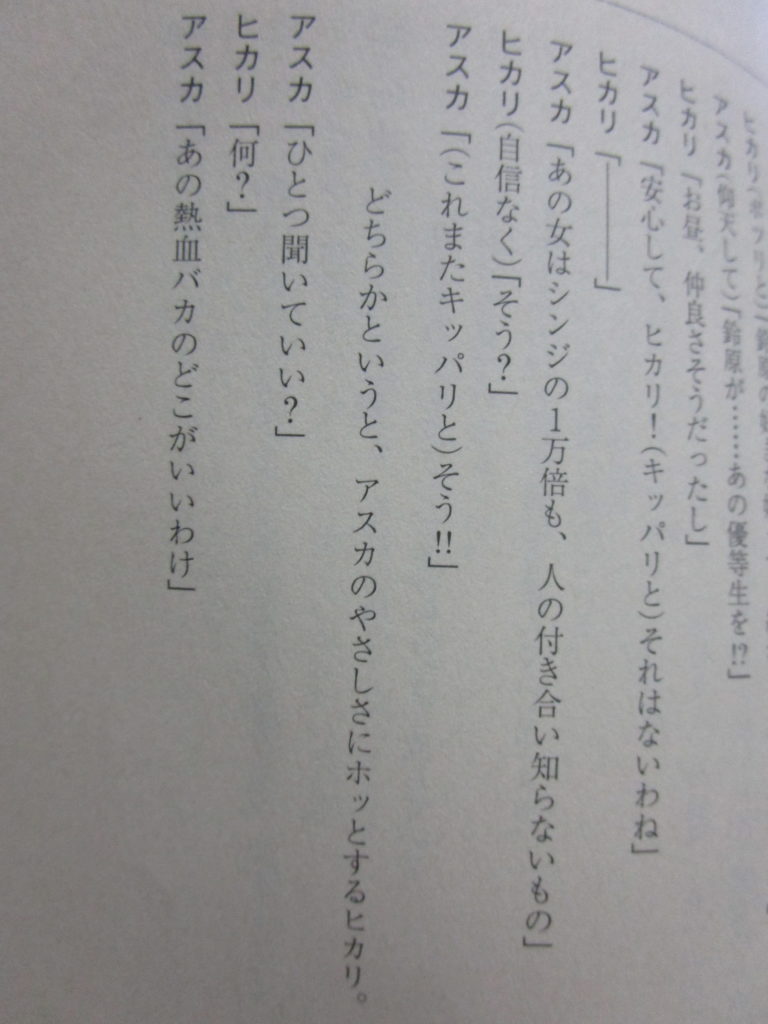 ヒカリ(ポツリと)「鈴原の
アスカ(仰天して)「鈴原が……あの優等生を!?」
ヒカリ「お昼、仲良さそうだったし」
アスカ「安心して、ヒカリ!(キッパリと)それはないわね」
ヒカリ「————」
アスカ「あの女はシンジの1万倍も、人の付き合い知らないもの」
ヒカリ(自信なく)「そう?」
アスカ「(これまたキッパリと)そう!!」
どちらかというと、アスカのやさしさにホッとするヒカリ。
アスカ「ひとつ聞いていい?」
ヒカリ「何?」
アスカ「あの熱血バカのどこがいいわけ」